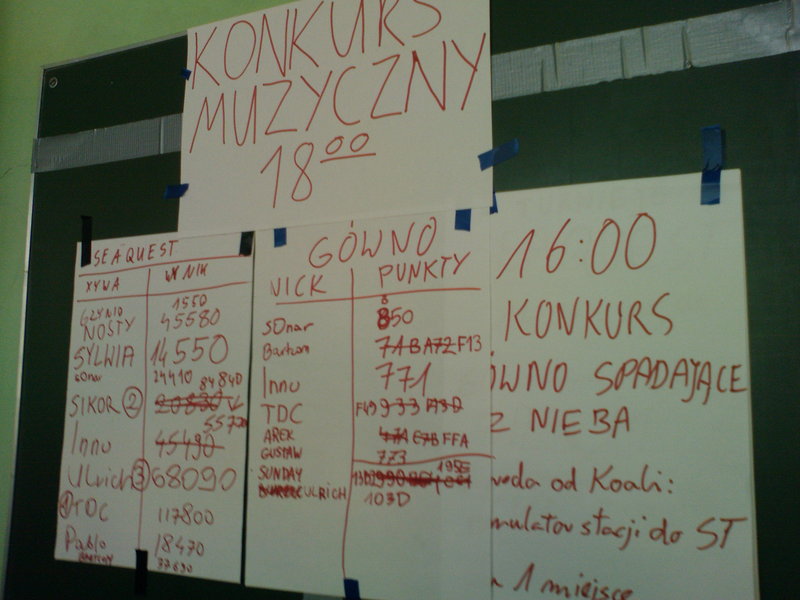 KONKURS
MUZYCZNY
18⁰⁰
SEAQUEST
XYWA WYNIK
1550
NOSTY 45580
SYLWIA 14550
sonar 24410
84840
SIKOR ② 20830
Innu 45490
Ulrich ③ 68090
① TDC 117800
Pablo 18470
37690
GÓWNO
NICK PUNKTY
sonar 850
Bartman 71BA72F13
Innu 771
TDC F49 933 A9D
AREK 47A C7B FFA
GUSTAW 773
SUNDAY
ULRICH 103D
16:00
KONKURS
ÓWNO SPADAJĄCE
Z NIEBA
woda od Koali:
mulator stacji do ST
1 miejsce